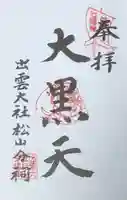 奉拝
大黒天
出雲大社松山分祠